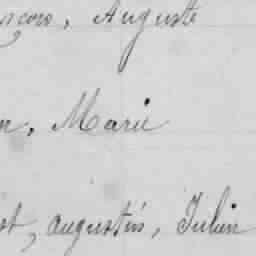 nçois, Auguste
n, Marie
st, augustin, Julien